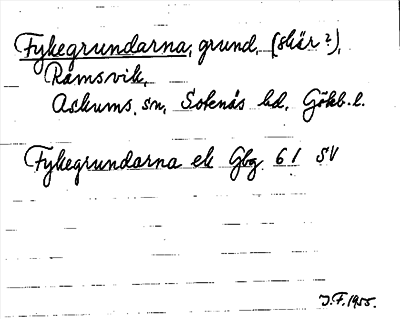 Fykegrundarna, grund, (skär?),
Ramsvik,
Askums sn, Sotenäs hd, Götb. l.
Fykegrundarna ek Gbg 61 SV
J.F. 1955.